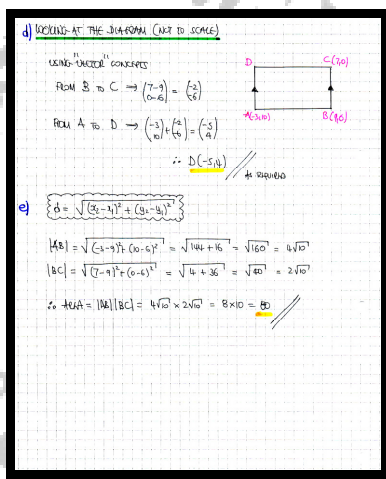 d) LOOKING AT THE DIAGRAM (NOT TO SCALE)
USING "VECTOR" CONCEPTS
FROM B TO C → (7-9 / 0-6) = (-2 / -6)
FROM A TO D → (-3 / 10) + (-2 / -6) = (-5 / 4)
∴ D(-5,4)
AS REQUIRED
D C(7,0)
A(-3,10) B(9,6)
e) d = √((x₂-x₁)² + (y₂-y₁)²)
|AB| = √((-3-9)² + (10-6)²) = √(144+16) = √160 = 4√10
|BC| = √((7-9)² + (0-6)²) = √(4+36) = √40 = 2√10
∴ AREA = |AB||BC| = 4√10 × 2√10 = 8×10 = 80